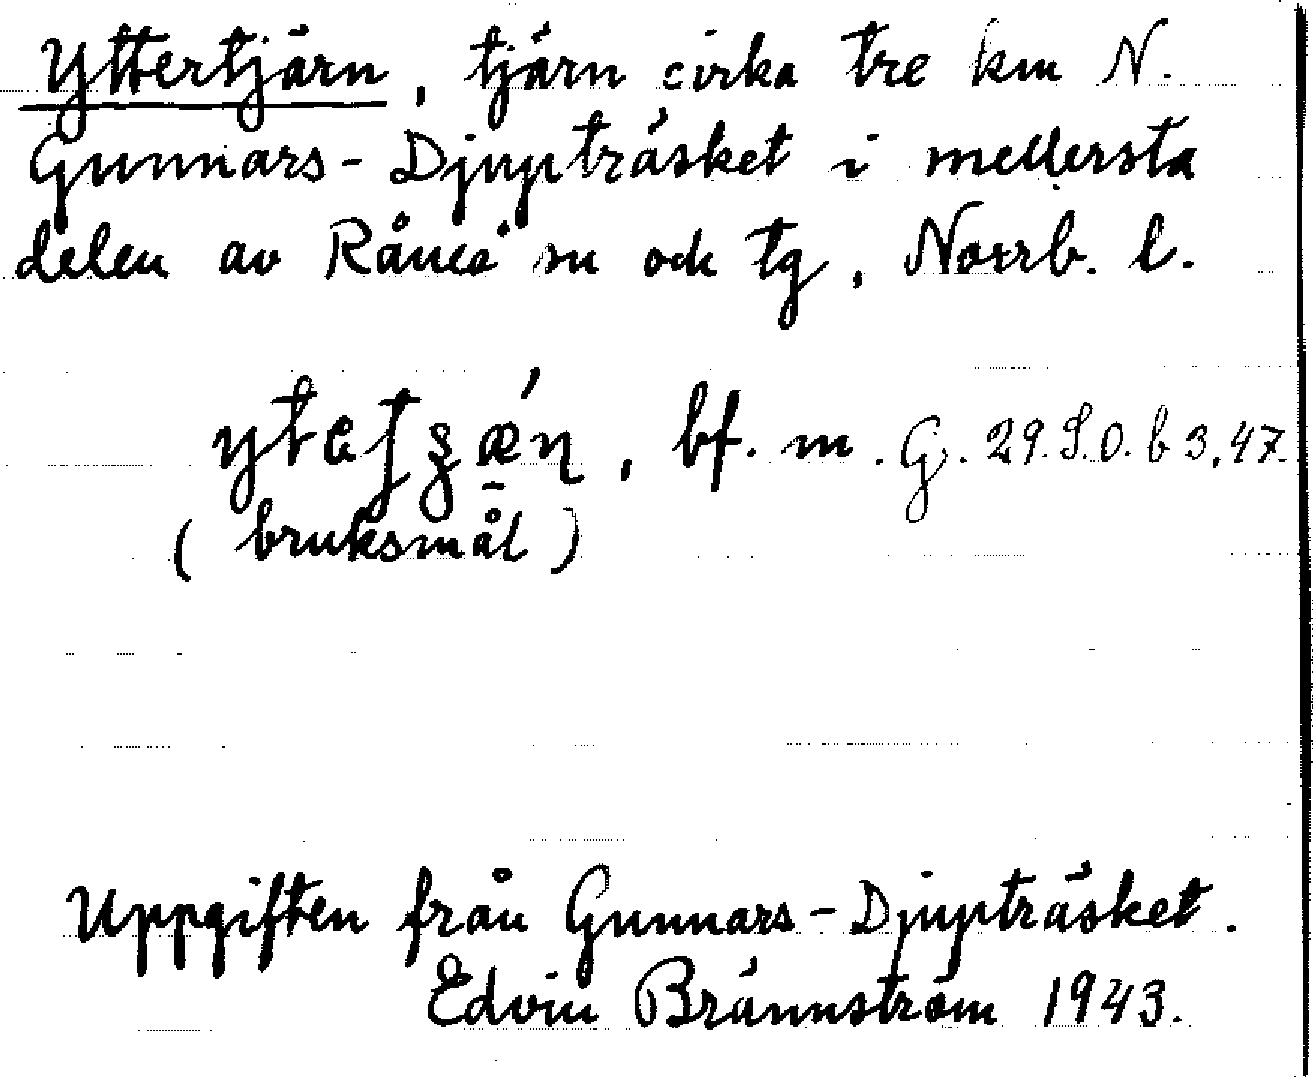 Yttertjärn, tjärn cirka tre km N.
Gunnars-Djupträsket i mellersta
delen av Råneå sn och tg, Norrb. l.
bf. m. G. 29. S.O. b 3,47
(bruksmål)
Uppgiften från Gunnars-Djupträsket.
Edvin Brännström 1943.